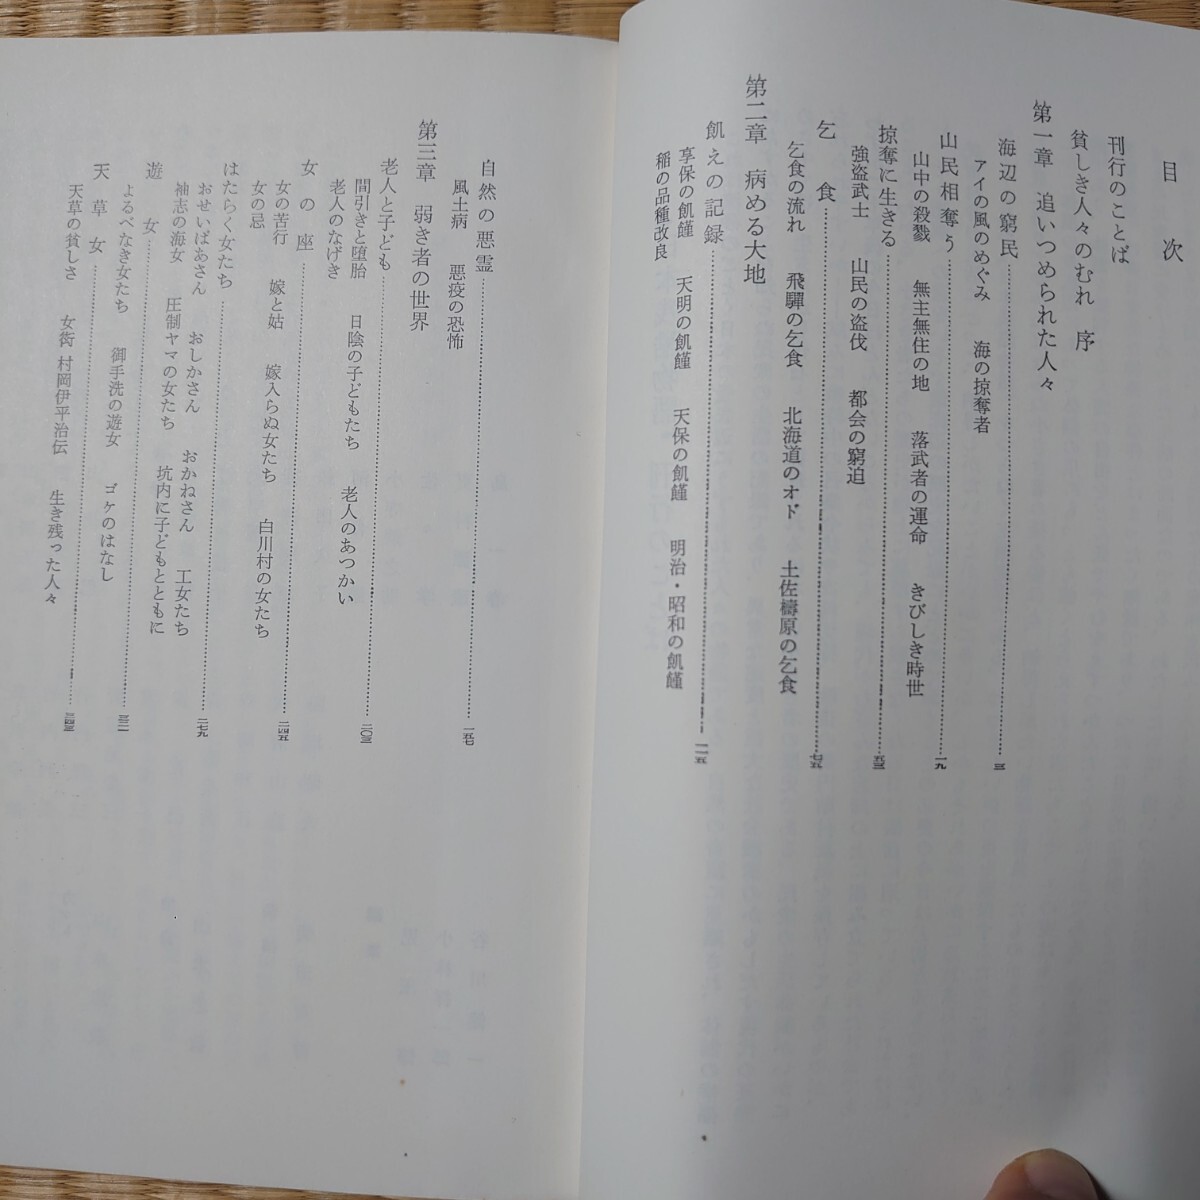 目次
刊行のことば
貧しき人々のむれ 序
第一章 追いつめられた人々
海辺の窮民……三
アイの風のめぐみ 海の掠奪者
山民相奪う……一九
山中の殺戮 無主無住の地 落武者の運命 きびしき時世
掠奪に生きる……五三
強盗武士 山民の盗伐 都会の窮迫
乞食……七五
乞食の流れ 飛驒の乞食 北海道のオド 土佐檮原の乞食
第二章 病める大地
飢えの記録……一一五
享保の飢饉 天明の飢饉 天保の飢饉 明治・昭和の飢饉
稲の品種改良
自然の悪霊……一五七
風土病 悪疫の恐怖
第三章 弱き者の世界
老人と子ども……二〇三
間引きと堕胎 日陰の子どもたち 老人のあつかい
老人のなげき
女の座……二四五
女の苦行 嫁と姑 嫁入らぬ女たち 白川村の女たち
女の忌
はたらく女たち……二七九
おせいばあさん おしかさん おかねさん 工女たち
袖志の海女 圧制ヤマの女たち 坑内に子どもとともに
遊女……三二一
よるべなき女たち 御手洗の遊女 ゴケのはなし
天草女……三四三
天草の貧しさ 女衒 村岡伊平治伝 生き残った人々